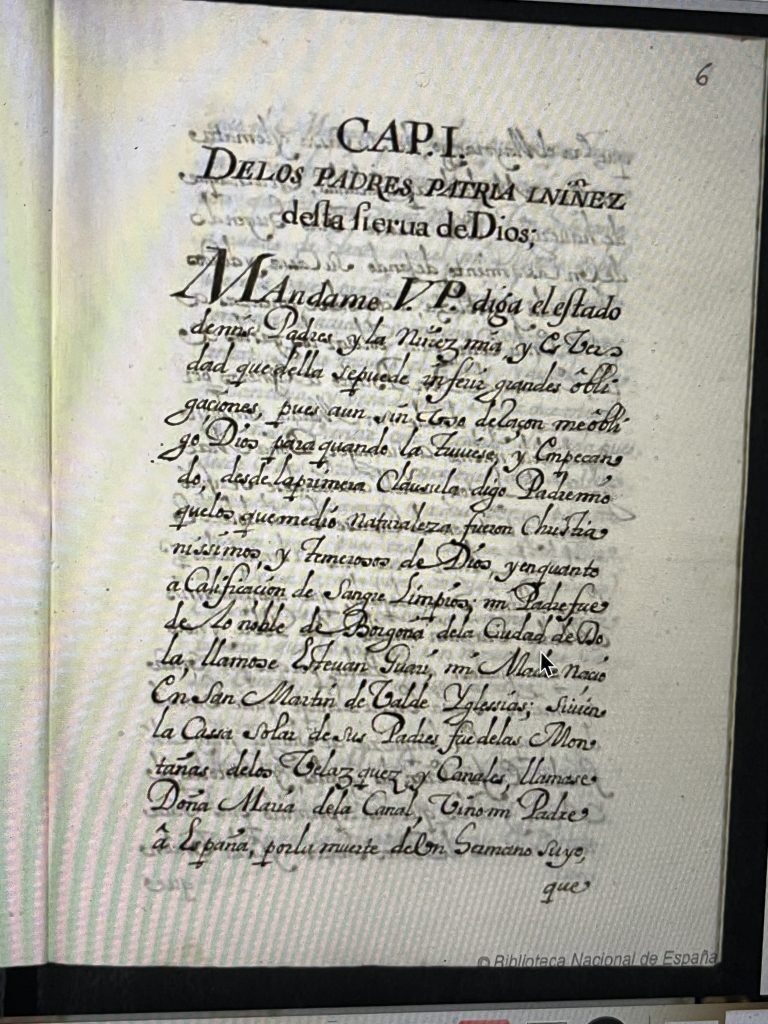 6
CAP. I.
DE LOS PADRES, PATRIA I NIÑEZ
desta sierua de Dios;
MAndame V. P. diga el estado
de mis Padres, y la Niñez mia, y Es Ver
dad que della se puede inferir grandes obli
gaciones, pues aun sin Vso de Raçon me obli
gò Dios para quando la tuuiese, y Empeçan
do, desde la primera Clausula digo Padre mio
que los que me dió Naturaleza fueron Christia
nissimos, y temerosos de Dios, y en quanto
a Calificacion de Sangre Limpios; mi Padre fue
de lo noble de Borgoña de la Ciudad de Do
la, llamose Esteuan Guari, mi Madre Nacio
En San Martin de Valde Yglessias;
la Cassa solar de sus Padres fue de las Mon
tañas de los Velazquez y Canales, llamase
Doña Maria de la Canal, Vino mi Padre
â España, por la muerte de Vn Hermano suyo,
que
© Biblioteca Nacional de España